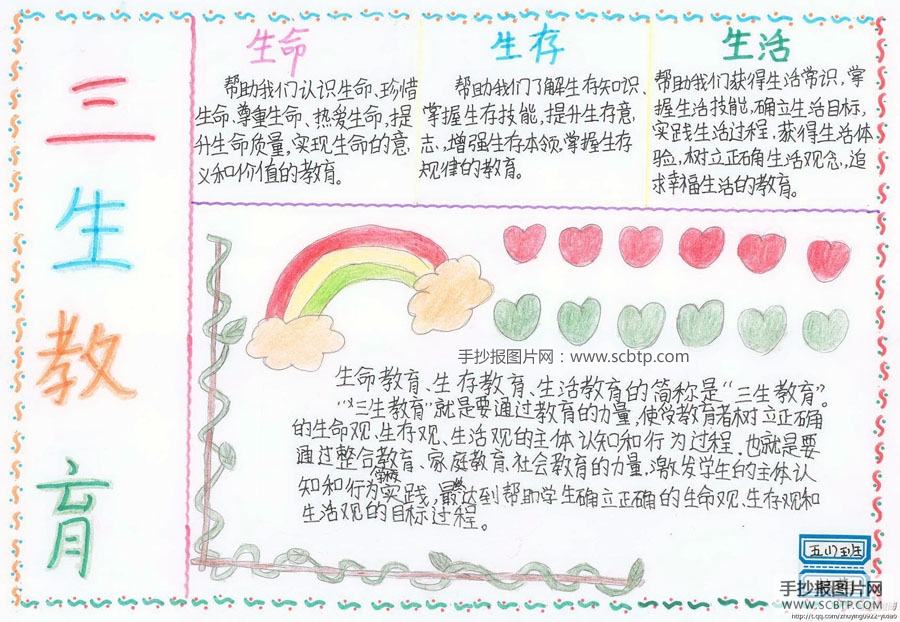 三生教育
生命
帮助我们认识生命、珍惜
生命、尊重生命、热爱生命,提
升生命质量,实现生命的意
义和价值的教育。
生存
帮助我们了解生存知识,
掌握生存技能,提升生存意
志,增强生存本领,掌握生存
规律的教育。
生活
帮助我们获得生活常识,掌
握生活技能,确立生活目标,
实践生活过程,获得生活体
验,树立正确生活观念,追
求幸福生活的教育。
手抄报图片网:www.scbtp.com
生命教育、生存教育、生活教育的简称是“三生教育”。
“三生教育”就是要通过教育的力量,使受教育者树立正确
的生命观、生存观、生活观的主体认知和行为过程。也就是要
通过整合教育、家庭教育、社会教育的力量,激发学生的主体认
学校
知和行为实践,最终达到帮助学生确立正确的生命观、生存观和
生活观的目标过程。
五(1)班
手抄报图片网
WWW.SCBTP.COM